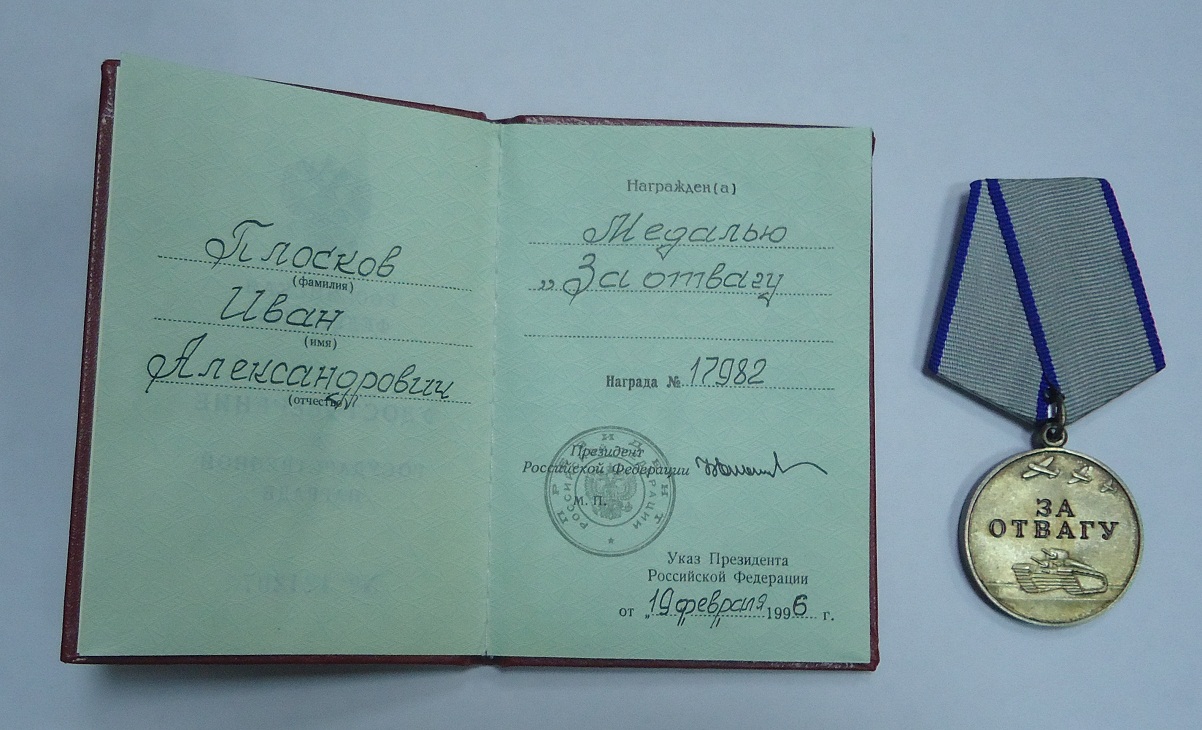 Плосков
(фамилия)
Иван
(имя)
Александрович
(отчество)
Награжден(а)
Медалью
„За отвагу
Награда № 17982
Президент
Российской Федерации
М. П.
ПРЕЗИДЕНТ
РОССИЙСКАЯ ФЕДЕРАЦИЯ
Указ Президента
Российской Федерации
от „19 февраля 1996 г.
ЗА
ОТВАГУ